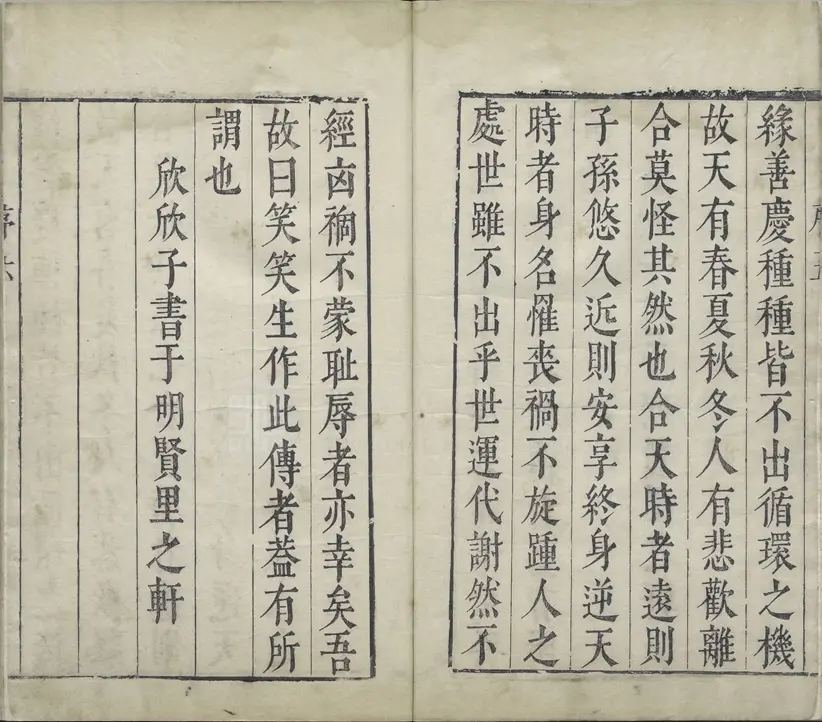 緣善慶種種皆不出循環之機
故天有春夏秋冬人有悲歡離
合莫怪其然也合天時者遠則
子孫悠久近則安享終身逆天
時者身名罹喪禍不旋踵人之
處世雖不出乎世運代謝然不
經凶禍不蒙耻辱者亦幸矣吾
故曰笑笑生作此傳者葢有所
謂也
欣欣子書于明賢里之軒